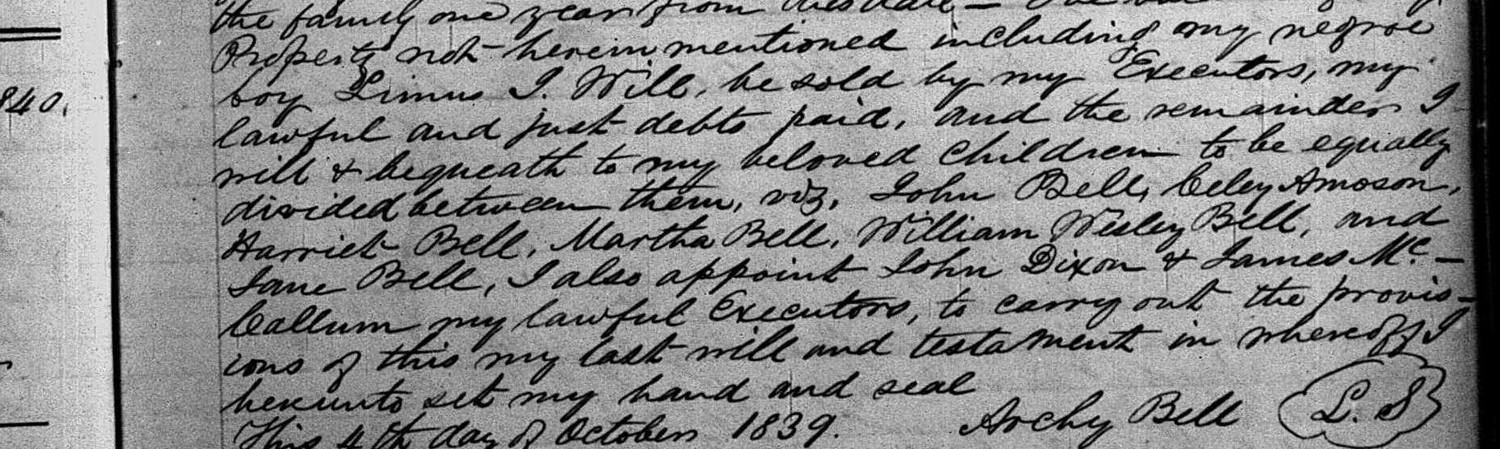 the family one year from this date —
Property not herein mentioned including my negroe
840.
boy Limus I. Will, be sold by my Executors, my
lawful and just debts paid, and the remainder I
will & bequeath to my beloved children to be equally
divided between them, viz, John Bell, Celey Amoson,
Harriet Bell, Martha Bell, William Wesley Bell, and
Jane Bell, I also appoint John Dixon & James Mc —
Callum my lawful Executors, to carry out the provis-
ions of this my last will and testament in whereoff I
hereunto set my hand and seal
This 4th day of October 1839. Archy Bell L. S